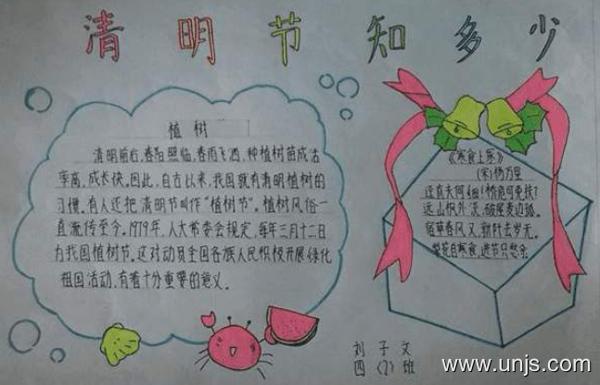 清明节知多少
植树
清明前后,春阳照临,春雨飞洒,种植树苗成活
率高,成长快。因此,自古以来,我国就有清明植树的
习惯。有人还把清明节叫作“植树节”。植树风俗一
直流传至今。1979年,人大常委会规定,每年三月十二日
为我国植树节。这对动员全国各族人民积极开展绿化
祖国活动,有着十分重要的意义。
《寒食上冢》
(宋)杨万里
迳直夫何细!桥危可免扶?
远山枫外淡,破屋麦边孤。
宿草春风又,新阡去岁无。
梨花自寒食,进节只愁余。
刘子文
四(7)班
www.unjs.com